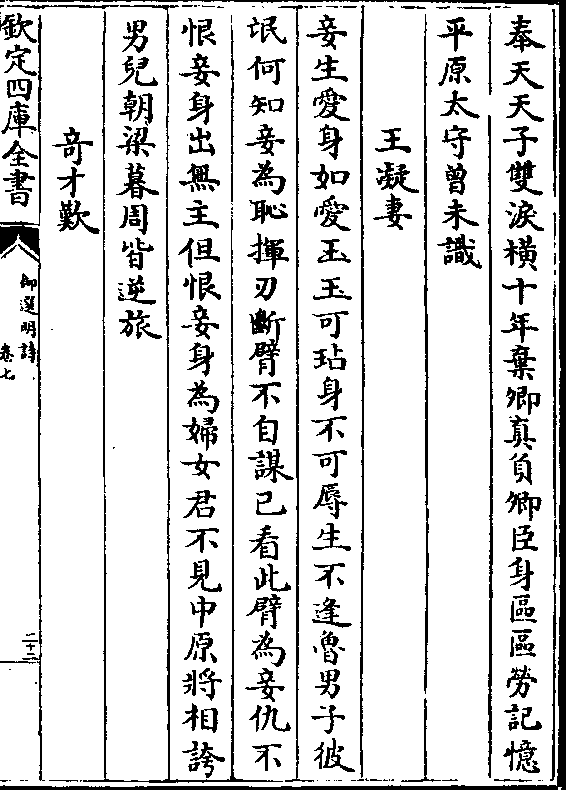 奉天天子雙淚橫十年棄卿真負卿臣身區區勞記憶
平原太守曾未識
王凝妻
妾生愛身如愛玉玉可玷身不可辱生不逢魯男子彼
氓何知妾為恥揮刃斷臂不自謀已看此臂為妾仇不
恨妾身出無主但恨妾身為婦女君不見中原將相誇
男兒朝梁暮周皆逆旅
奇才歎
欽定四庫全書
御選明詩
卷七
二十二